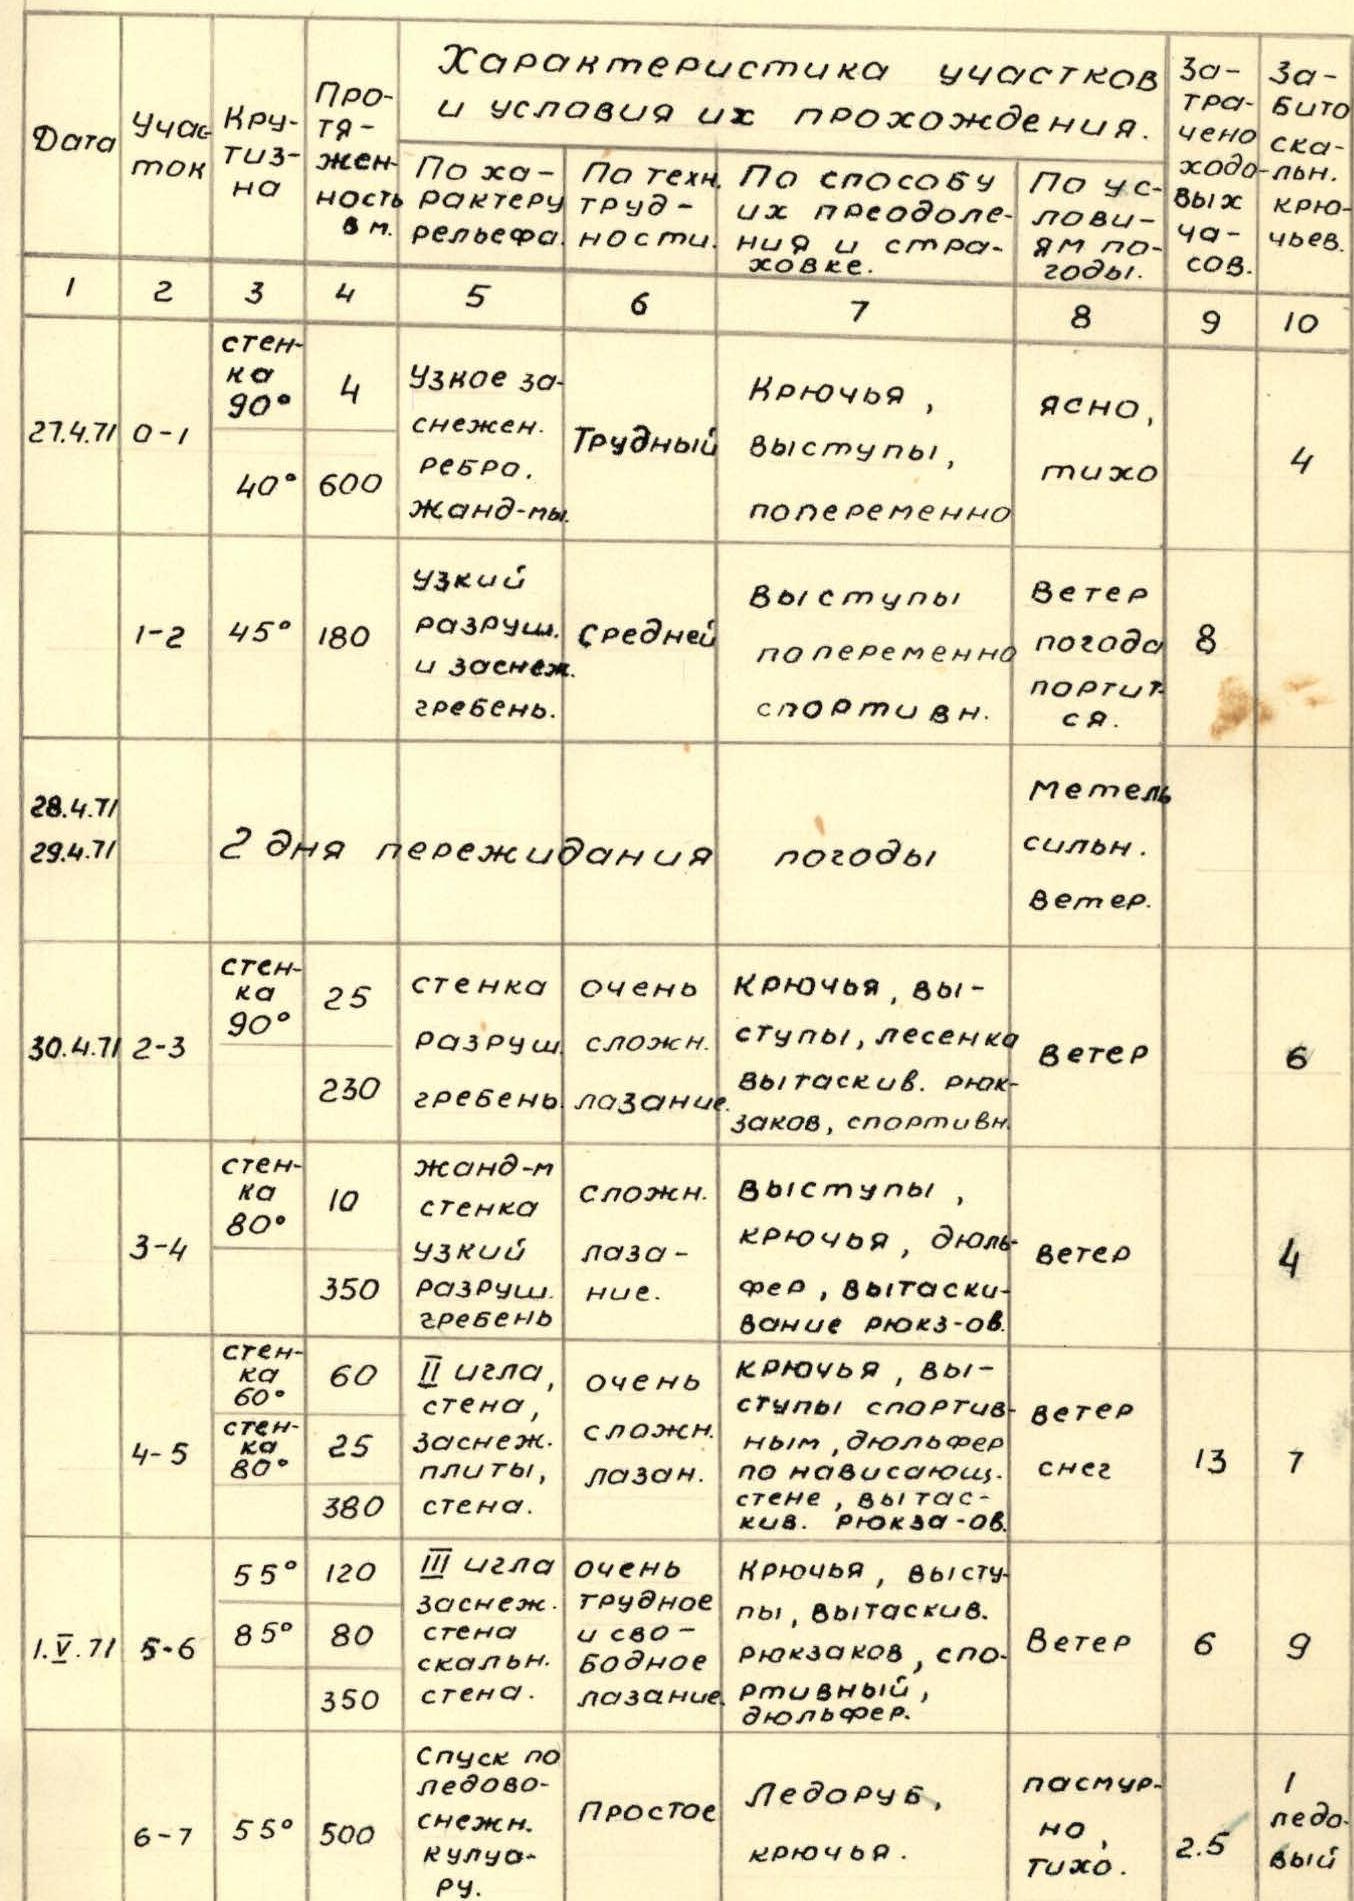 Характеристика участков
и условия их прохождения.
Дата
Учас
ток
Кру-
тиз-
на
Про-
тя-
жен-
ность
в м.
По ха-
рактеру
рельефа.
По техн.
труд-
ности.
По способу
их преодоле-
ния и стра-
ховке.
По ус-
лови-
ям по-
годы.
За-
тра-
чено
ходо-
вых
ча-
сов.
За-
бито
ска-
льн.
крю-
чьев.
1 2 3 4 5 6 7 8 9 10
27.4.71
0-1
стен-
ка
90°
40°
4
600
Узкое за-
снежен.
ребро.
жанд-мы.
Трудный
Крючья,
выступы,
попеременно
ясно,
тихо
4
1-2
45°
180
узкий
разруш.
и заснеж.
гребень.
Средней
Выступы
попеременно
спортивн.
Ветер
погода
портит-
ся.
8
28.4.71
29.4.71
2 дня пережидания погоды
Метель
сильн.
Ветер.
30.4.71
2-3
стен-
ка
90°
25
230
стенка
разруш.
гребень.
очень
сложн.
лазание.
Крючья, вы-
ступы, лесенка
вытаскив. рюк-
заков, спортивн.
Ветер
6
3-4
стен-
ка
80°
10
350
жанд-м
стенка
узкий
разруш.
гребень
сложн.
лаза-
ние.
Выступы,
крючья, дюль-
фер, вытаски-
вание рюкз-ов.
Ветер
4
4-5
стен-
ка
60°
стен-
ка
80°
60
25
380
II игла,
стена,
заснеж.
плиты,
стена.
очень
сложн.
лазан.
крючья, вы-
ступы спортив-
ным, дюльфер
по нависающ.
стене, вытас-
кив. рюкза-ов.
Ветер
снег
13
7
1.V.71
5-6
55°
85°
120
80
350
III игла
заснеж.
стена
скальн.
стена.
очень
трудное
и сво-
бодное
лазание.
Крючья, высту-
пы, вытаскив.
рюкзаков, спо-
ртивный,
дюльфер.
Ветер
6
9
6-7
55°
500
Спуск по
ледово-
снежн.
кулуа-
ру.
Простое
Ледоруб,
крючья.
пасмур-
но,
тихо.
2.5
1
ледо-
вый